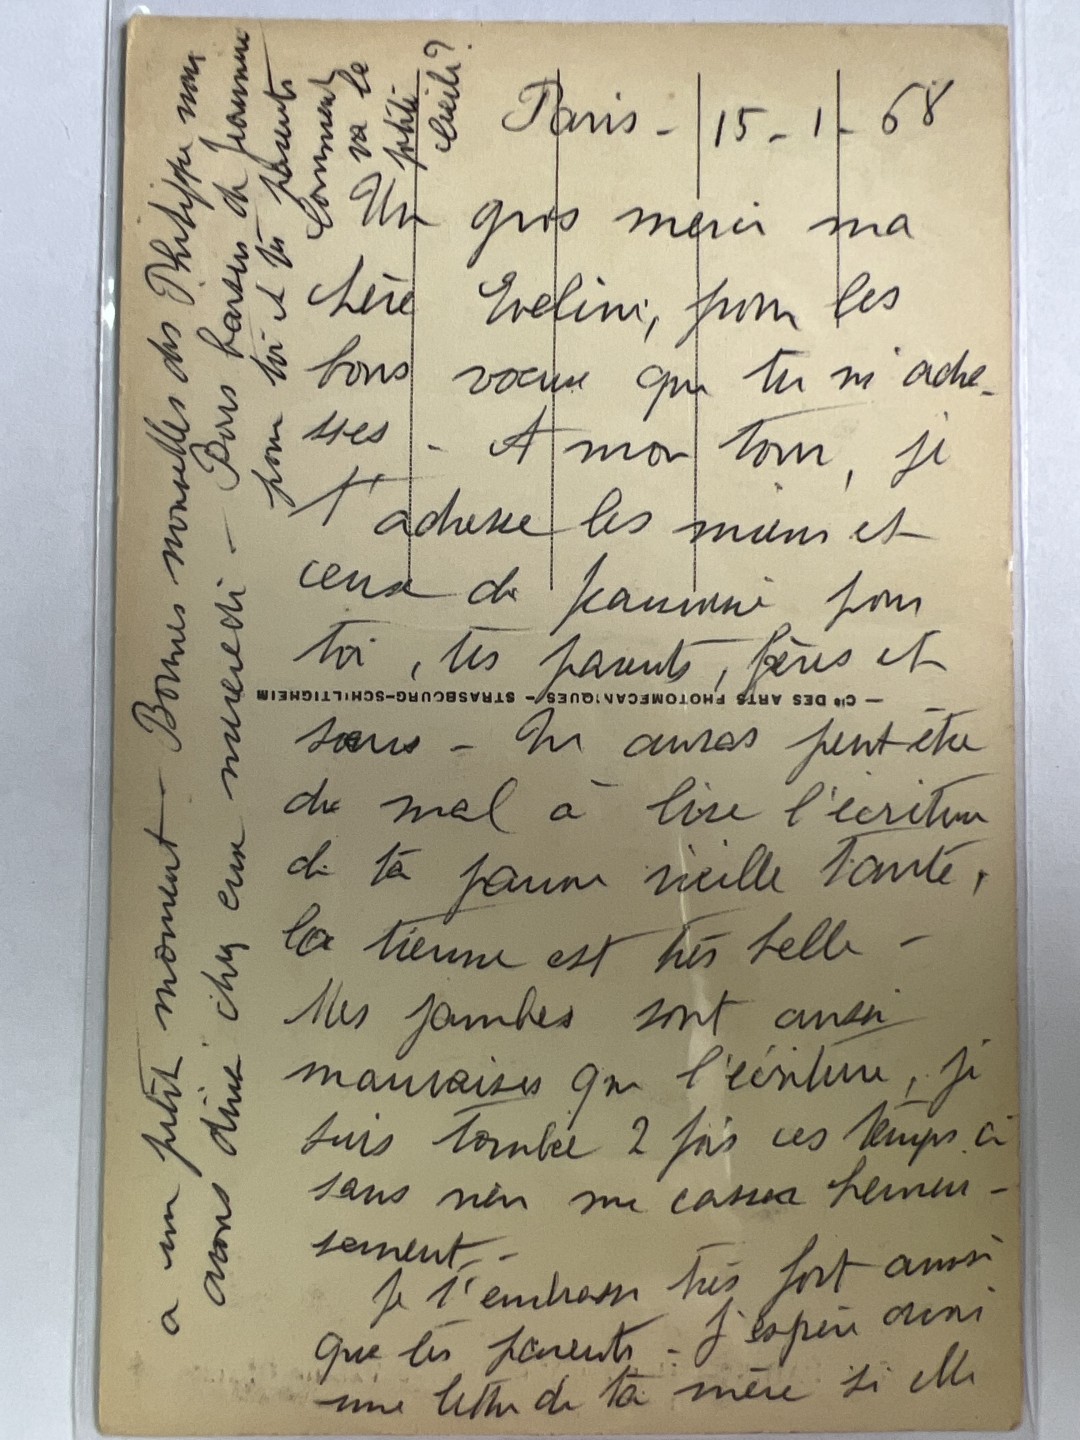 Paris - 15 - 1 - 68
Un gros merci ma
chère Eveline, pour les
bons voeux que tu m'adre-
sses - A mon tour, je
t'adresse les miens et
ceux de Jeannine pour
toi, tes parents, frères et
soeurs - Tu auras peut-être
du mal à lire l'écriture
de ta pauvre vieille Tante,
la tienne est très belle -
Mes jambes sont aussi
mauvaises que l'écriture, je
suis tombée 2 fois ces temps ci
sans rien me casser heureu-
sement. -
Je t'embrasse très fort ainsi
que tes parents - J'espère avoir
une lettre de ta mère si elle
a un petit moment - Bonnes nouvelles des Philippe nous
avons dîné chez eux mercredi - Bons baisers de Jeannine
pour toi et tes parents
Comment
va la
petite
Cécile?
— Cie DES ARTS PHOTOMECANIQUES - STRASBOURG-SCHILTIGHEIM